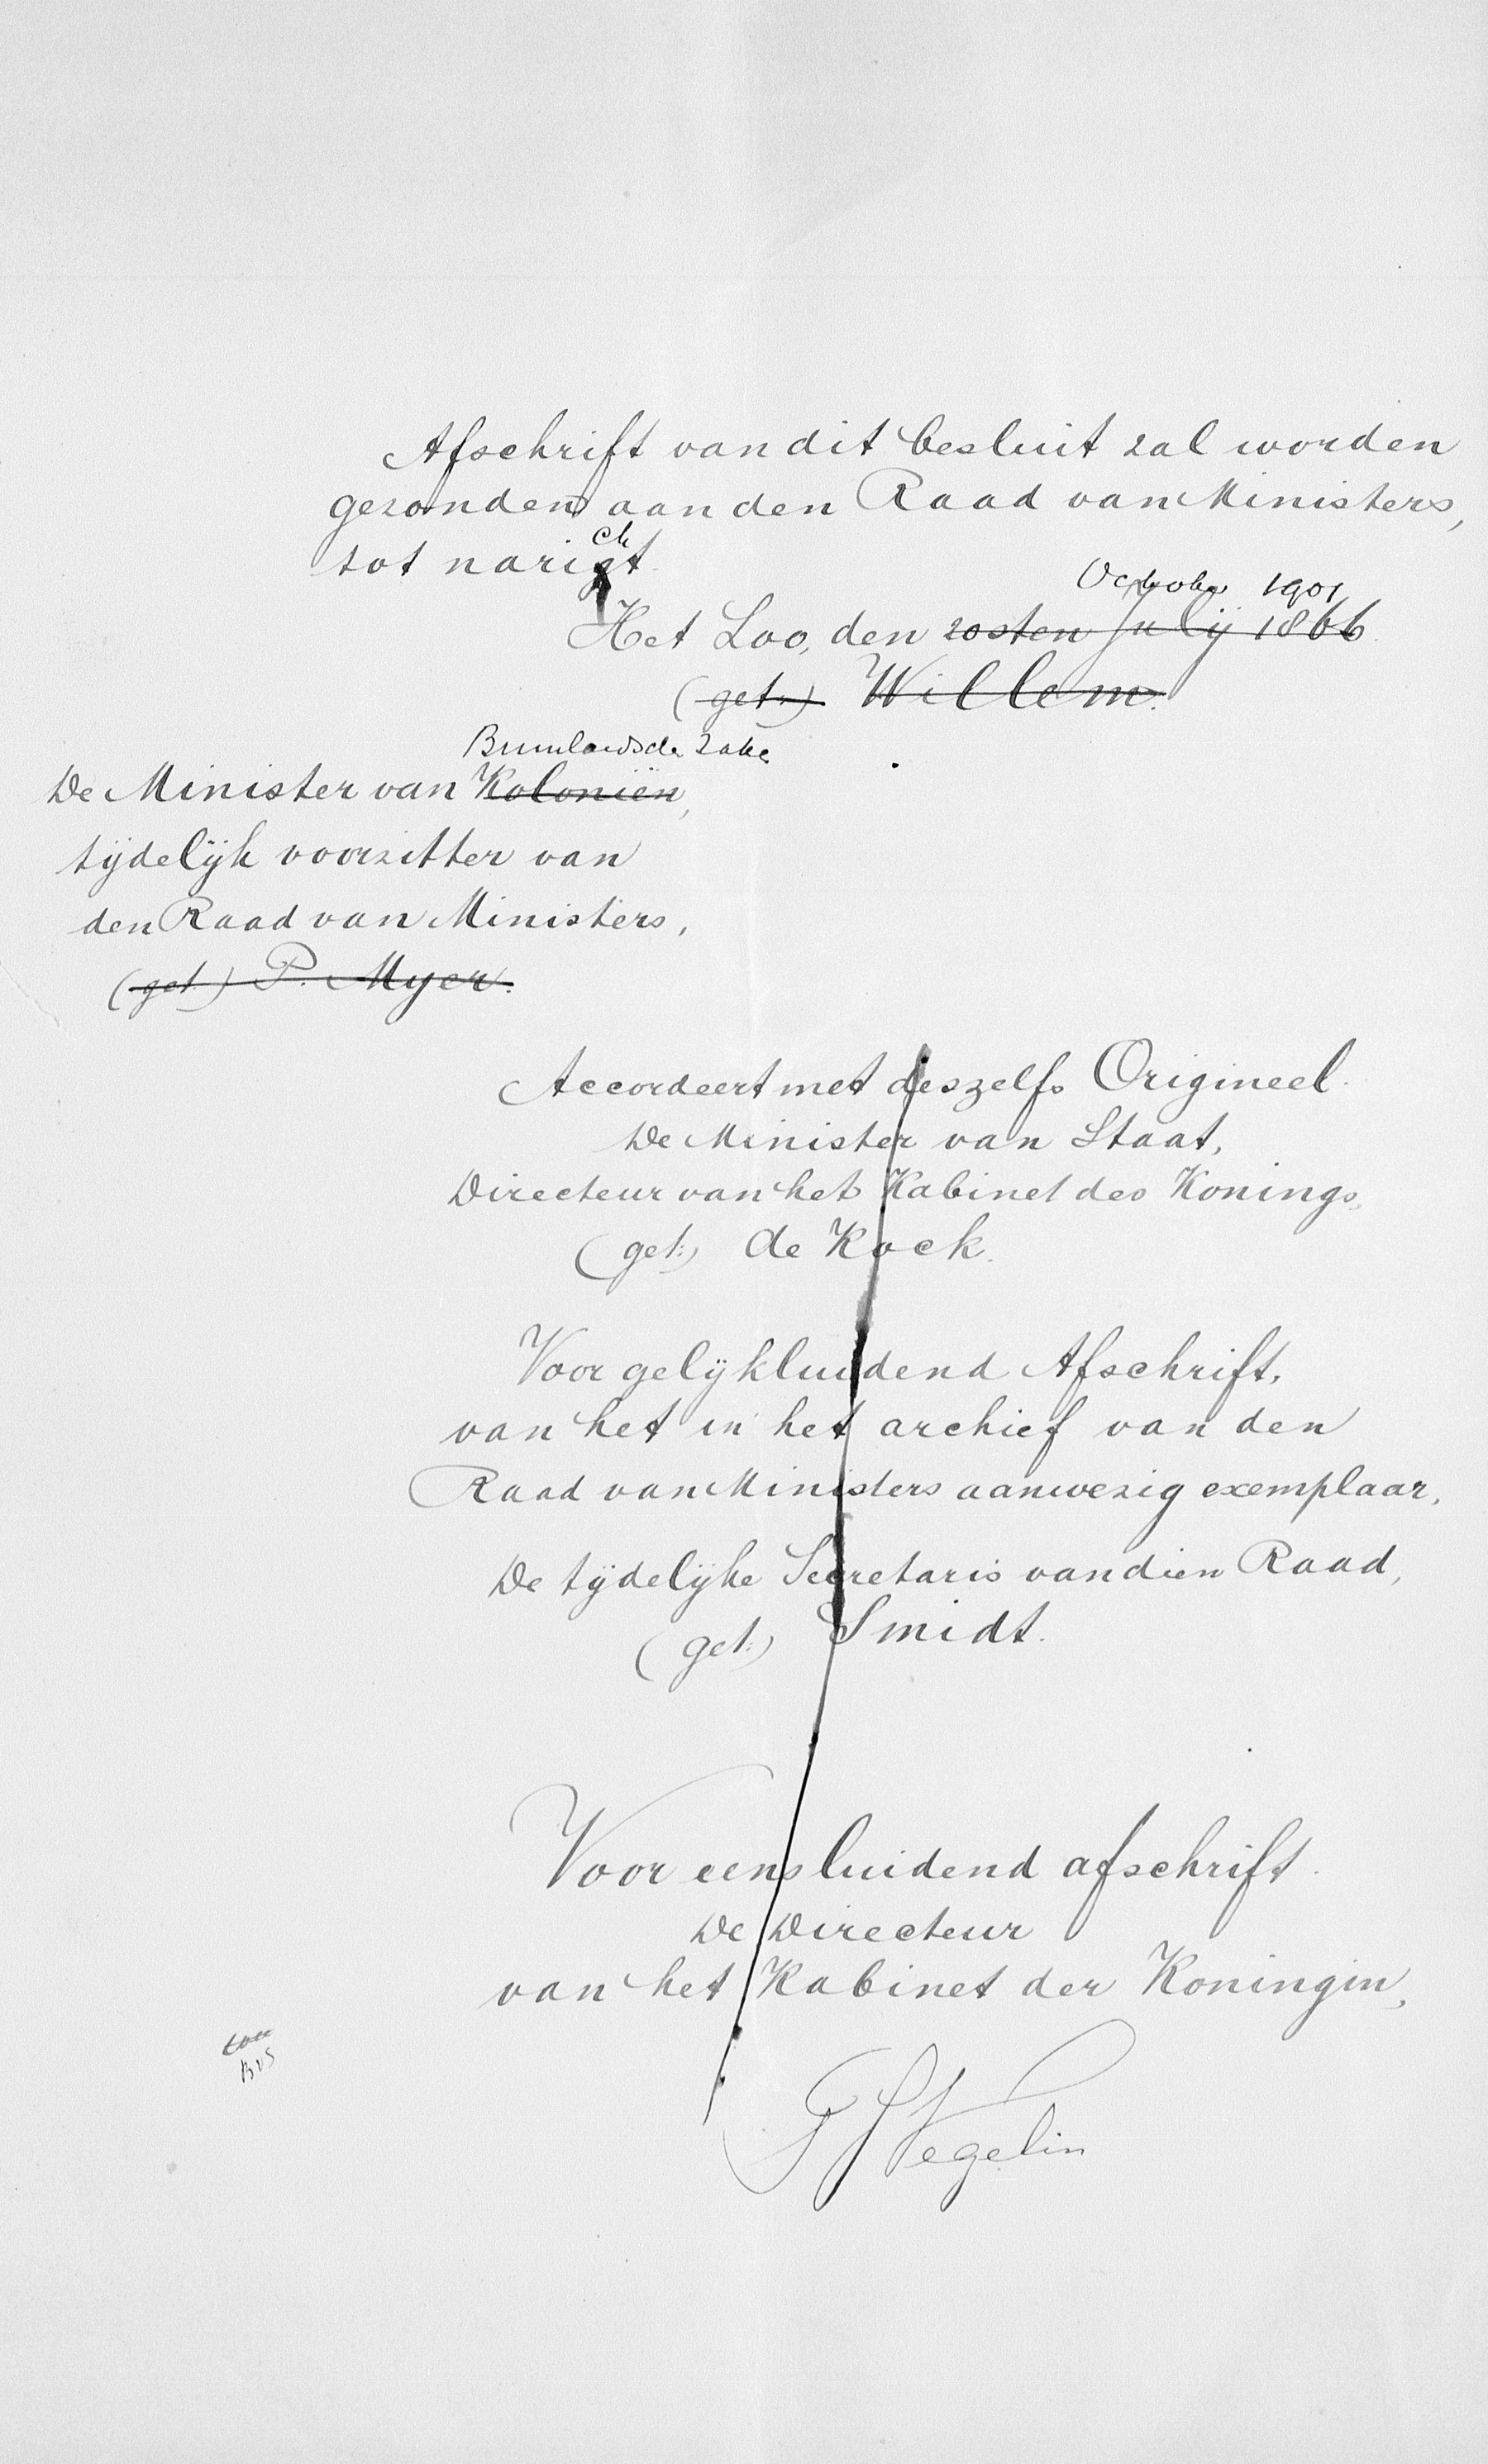 Afschrift van dit besluit zal worden
gezonden aan den Raad van Ministers,
ch
tot narigt.
October 1901
Het Loo, den 20sten Julij 1866.
(get:) Willem.
Binnenlandsche Zake
De Minister van Koloniën,
tijdelijk voorzitter van
den Raad van Ministers,
(get.) P. Myer.
Accordeert met deszelfs Origineel.
De Minister van Staat,
Directeur van het Kabinet des Konings,
(get:) de Kock.
Voor gelijkluidend Afschrift,
van het in het archief van den
Raad van Ministers aanwezig exemplaar,
De tijdelijke Secretaris van dien Raad,
(get:) Smidt.
Voor eensluidend afschrift.
De Directeur
van het Kabinet der Koningin,
Vegelin